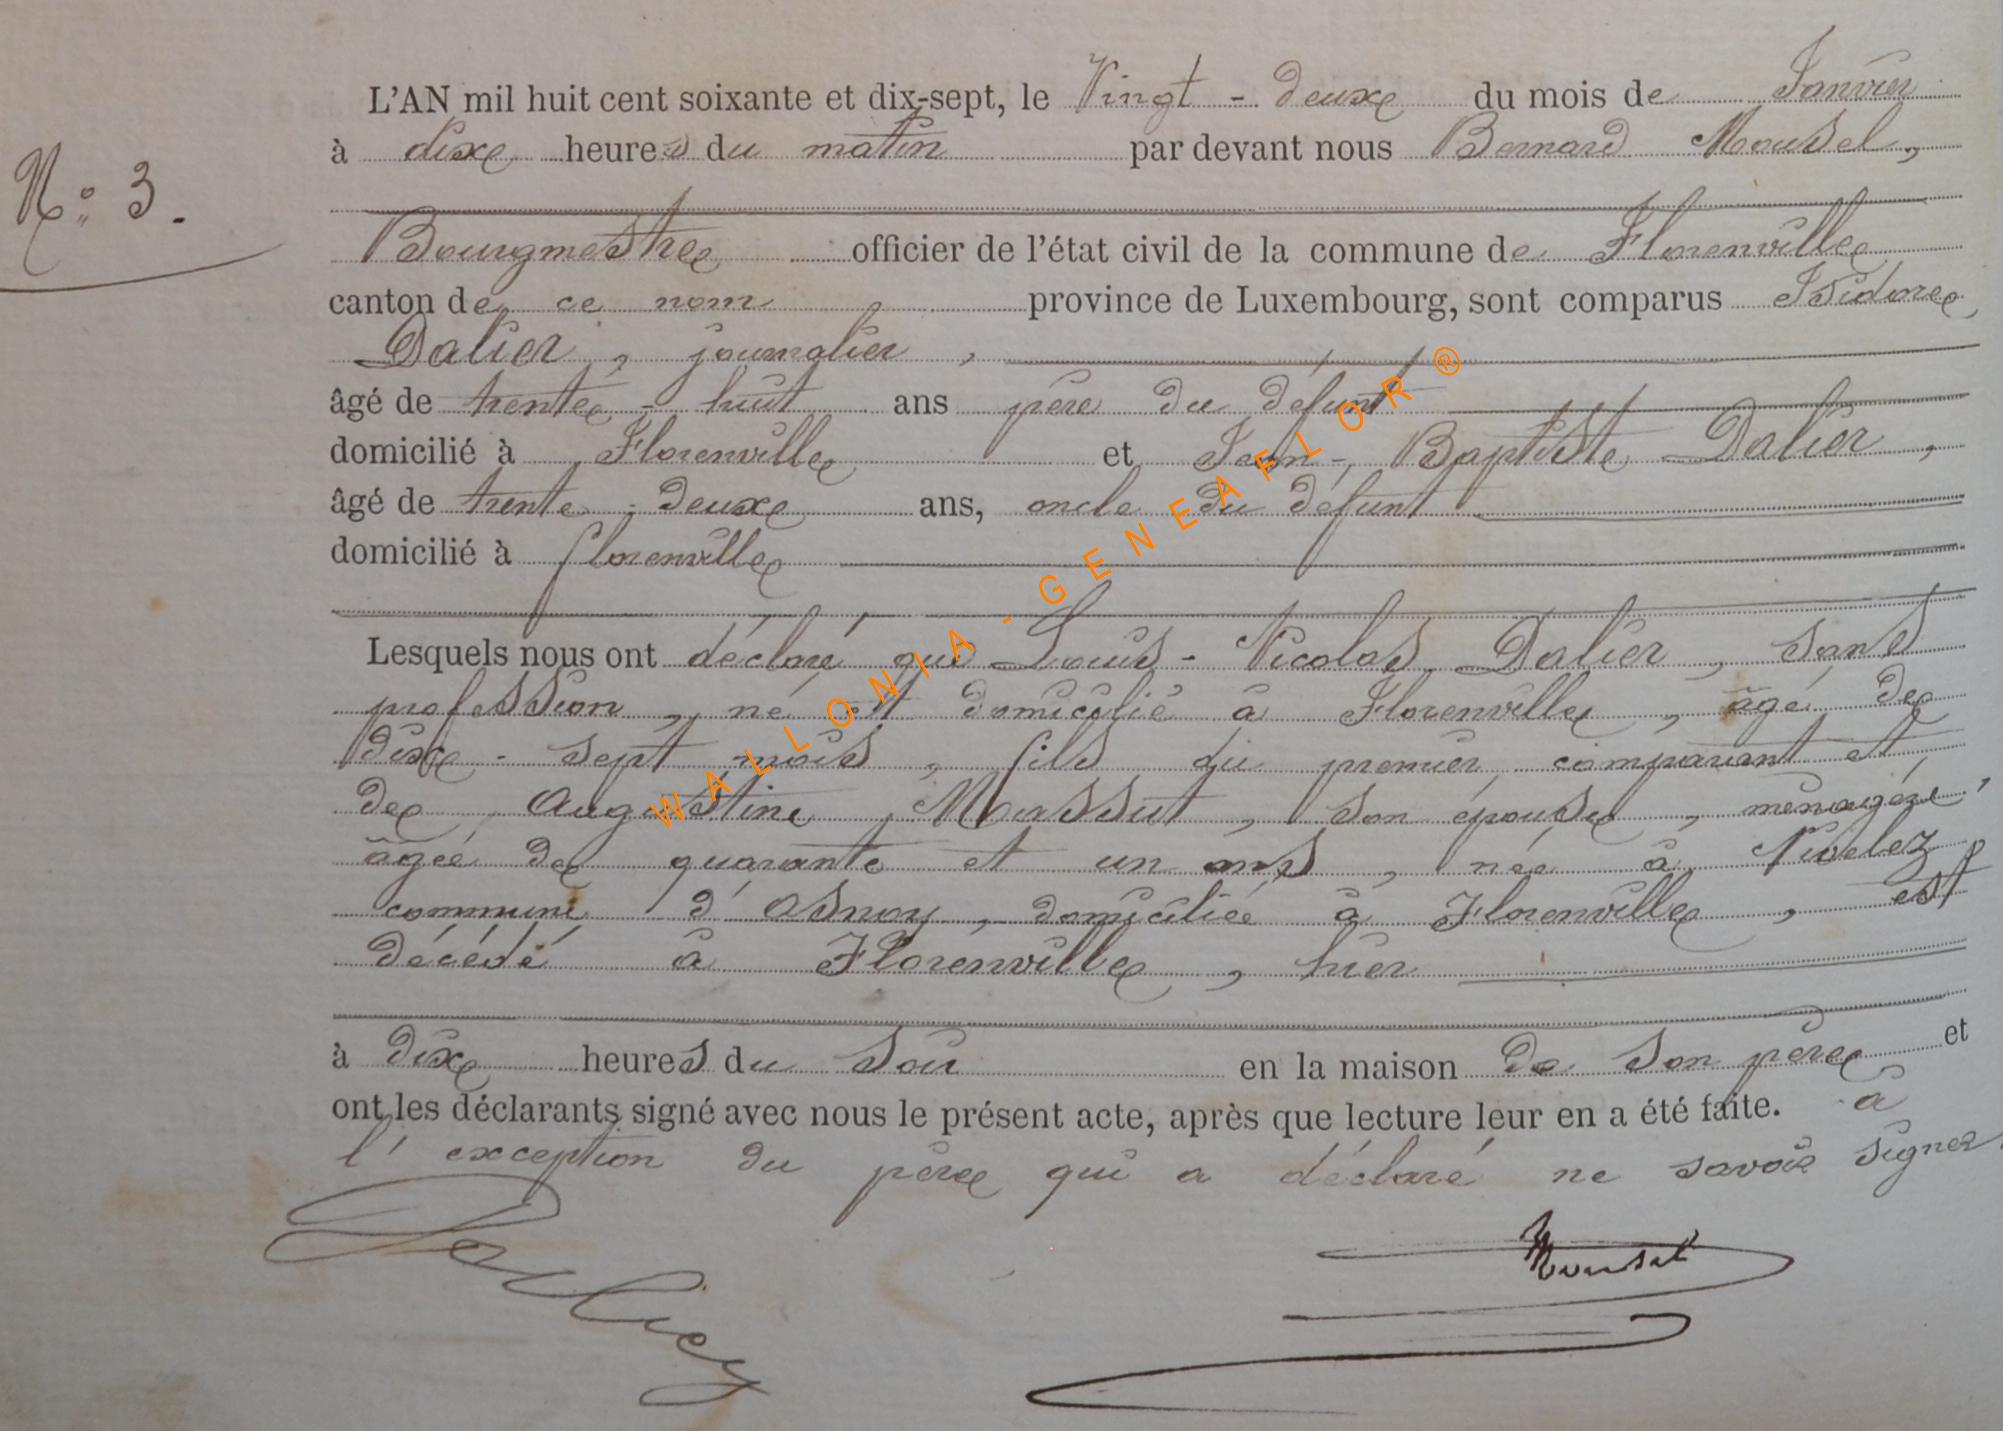 L'AN mil huit cent soixante et dix-sept, le Vingt - deux du mois de Janvier
à dix heures du matin par devant nous Bernard Mousel,
N° 3.
Bourgmestre officier de l'état civil de la commune de Florenville
canton de ce nom province de Luxembourg, sont comparus Isidore
Dalier, journalier,
âgé de trente - huit ans père du défunt
domicilié à Florenville et Jean - Baptiste Dalier,
âgé de trente - deux ans, oncle du défunt
domicilié à florenville
Lesquels nous ont déclaré que Louis - Nicolas Dalier, sans
profession, né et domicilié à Florenville, âgé de
dix - sept mois, fils du premier comparant et
de Augustine Massut, son épouse, ménagère,
âgée de quarante et un ans, née à
commune d'Asnoy, domiciliée à Florenville, est
décédé à Florenville, hier
à dix heures du soir en la maison de son père et
ont les déclarants signé avec nous le présent acte, après que lecture leur en a été faite. à
l'exception du père qui a déclaré ne savoir signer.
Mousel
WALLONIA - GENEAFLOR ®